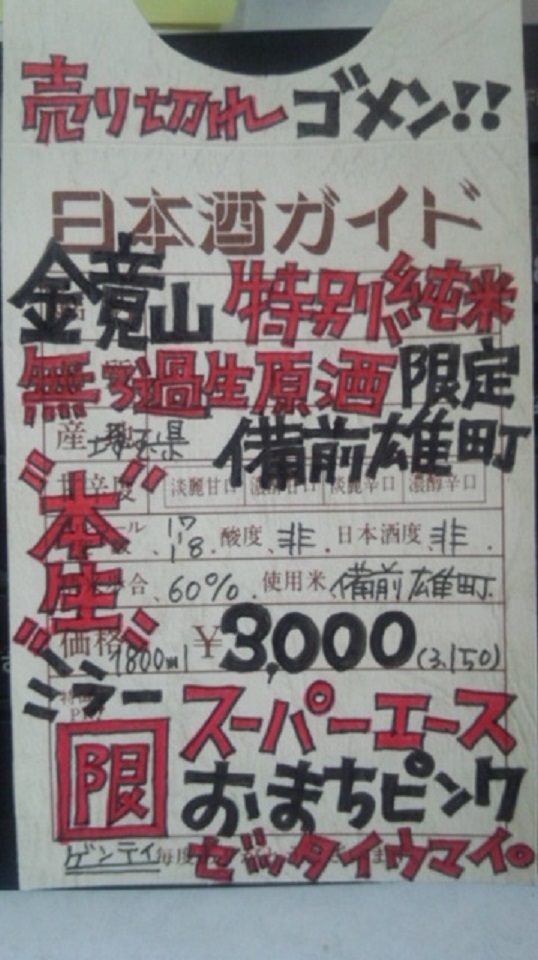 売り切れゴメン!!
日本酒ガイド
金竟山 特別純米
無ろ過生原酒 限定
備前雄町
産地 埼玉県
甘辛度 淡麗甘口 濃醇甘口 淡麗辛口 濃醇辛口
17~18. 酸度、非. 日本酒度、非.
合、60%. 使用米、備前雄町.
価格 1800ml ¥3,000(3,150)
"本生"
ミラー
限 スーパーエース
おまちピンク
ゲンテイ 毎度 ゼッタイウマイ。